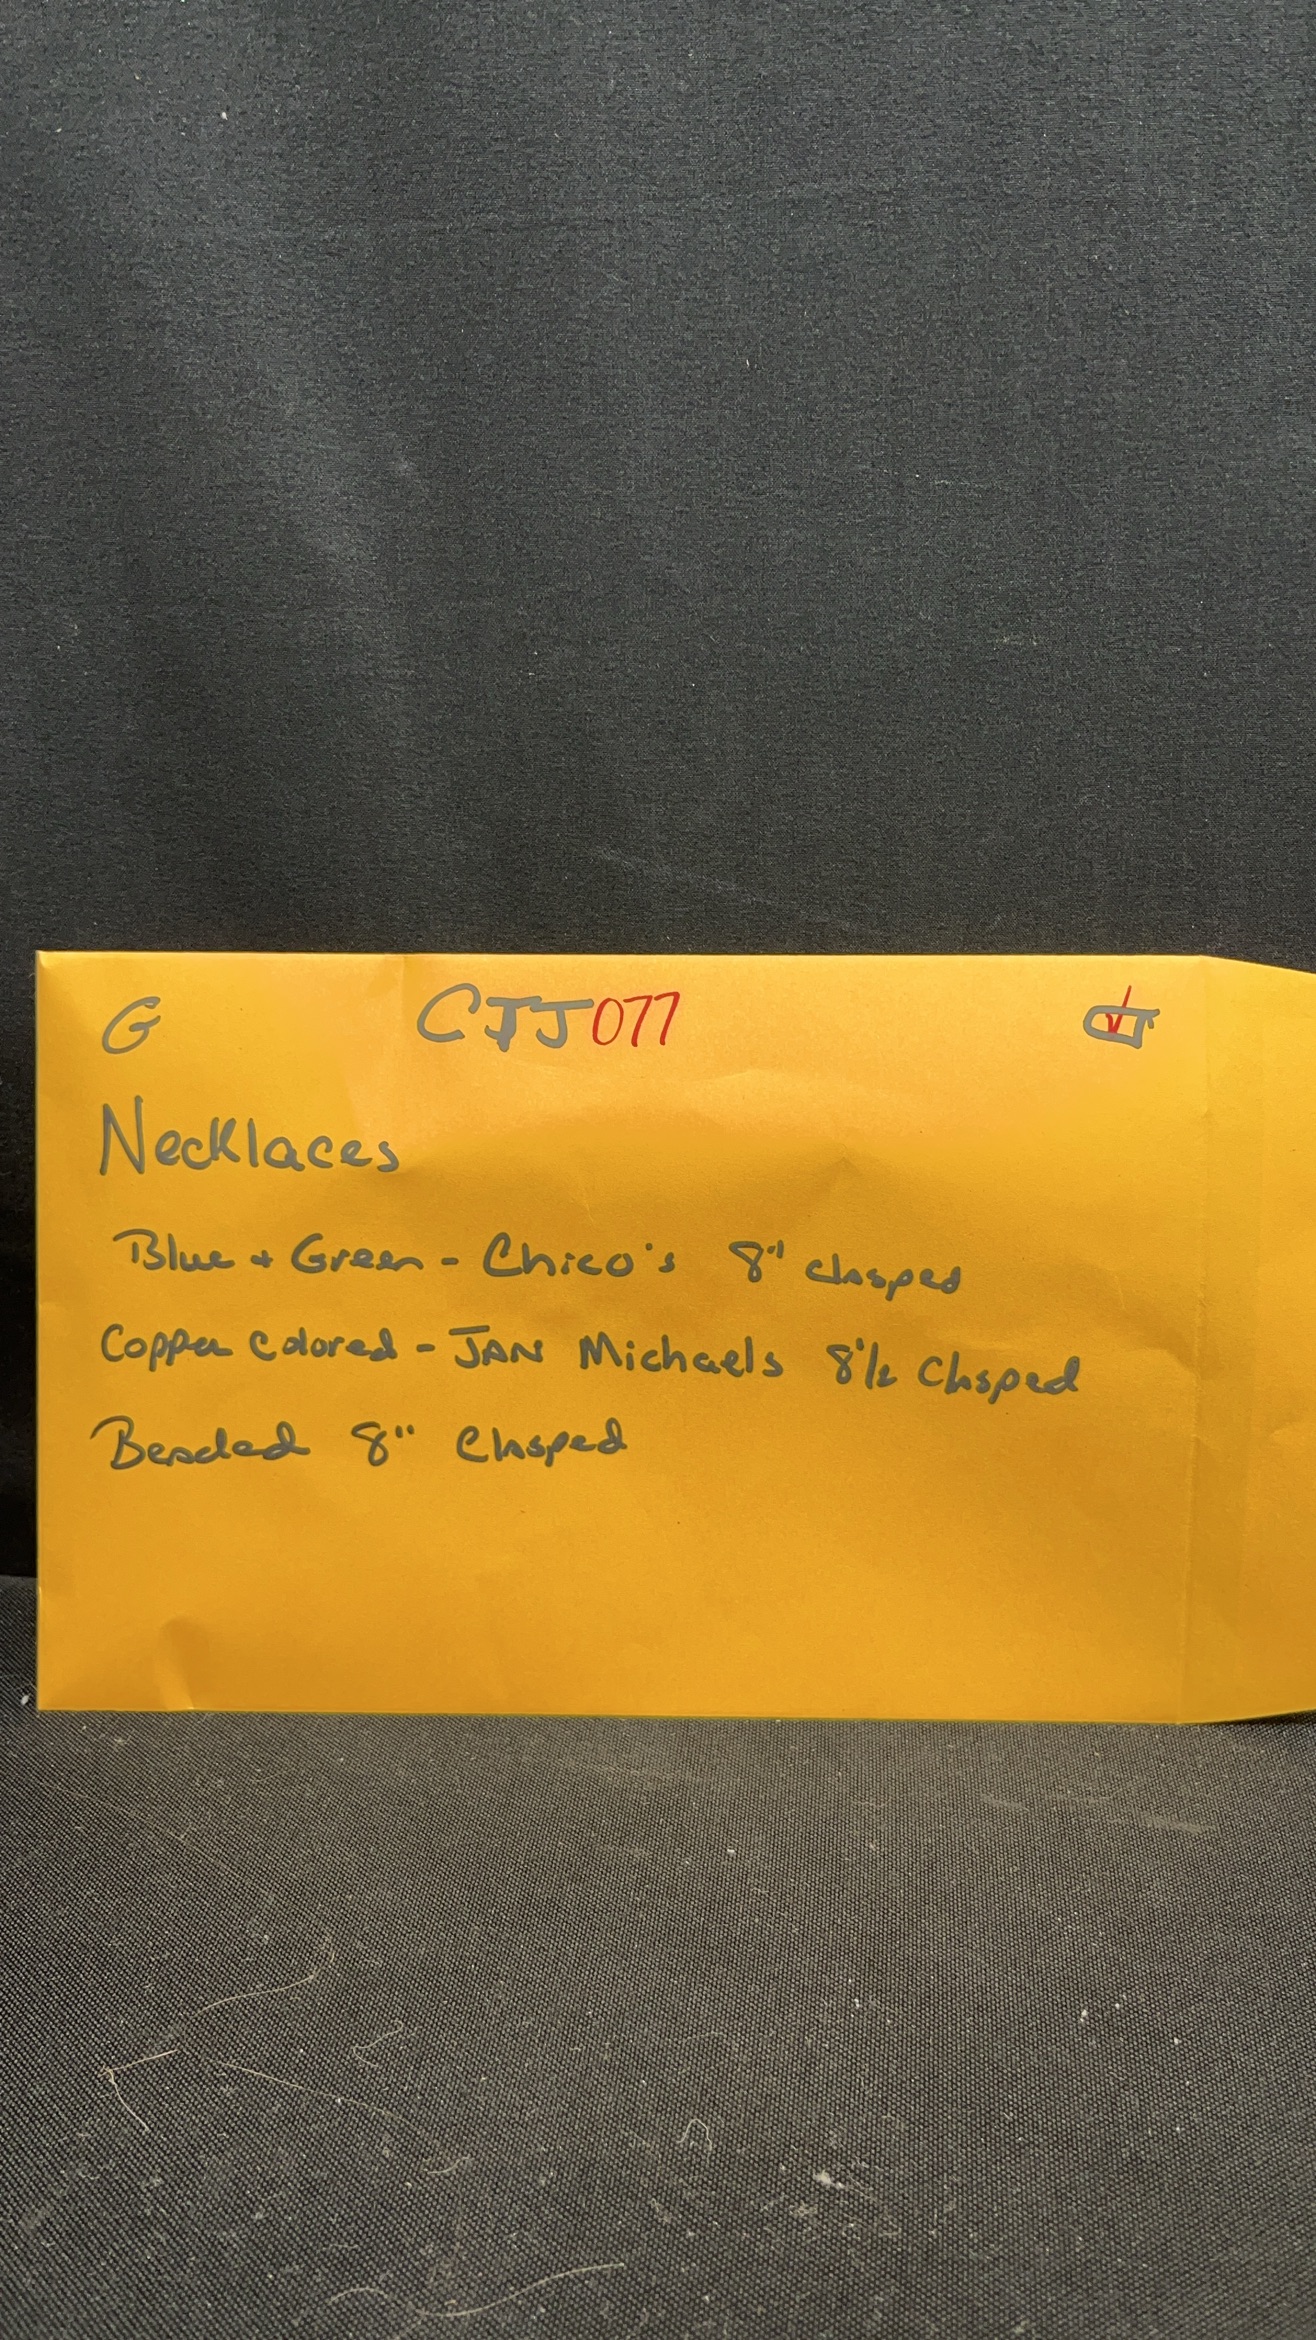 G CJJ077
Necklaces
Blue + Green - Chico's 8" clasped
Copper Colored - JAN Michaels 8 1/2 Clasped
Beaded 8" Clasped